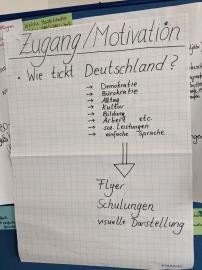 Welche
Zugang/Motivation
• Wie tickt Deutschland?
→ Demokratie
→ Bürokratie
→ Alltag
→ Kultur
→ Bildung
→ Arbeit etc.
→ soz. Leistungen
→ einfache Sprache
Flyer
Schulungen
visuelle Darstellung